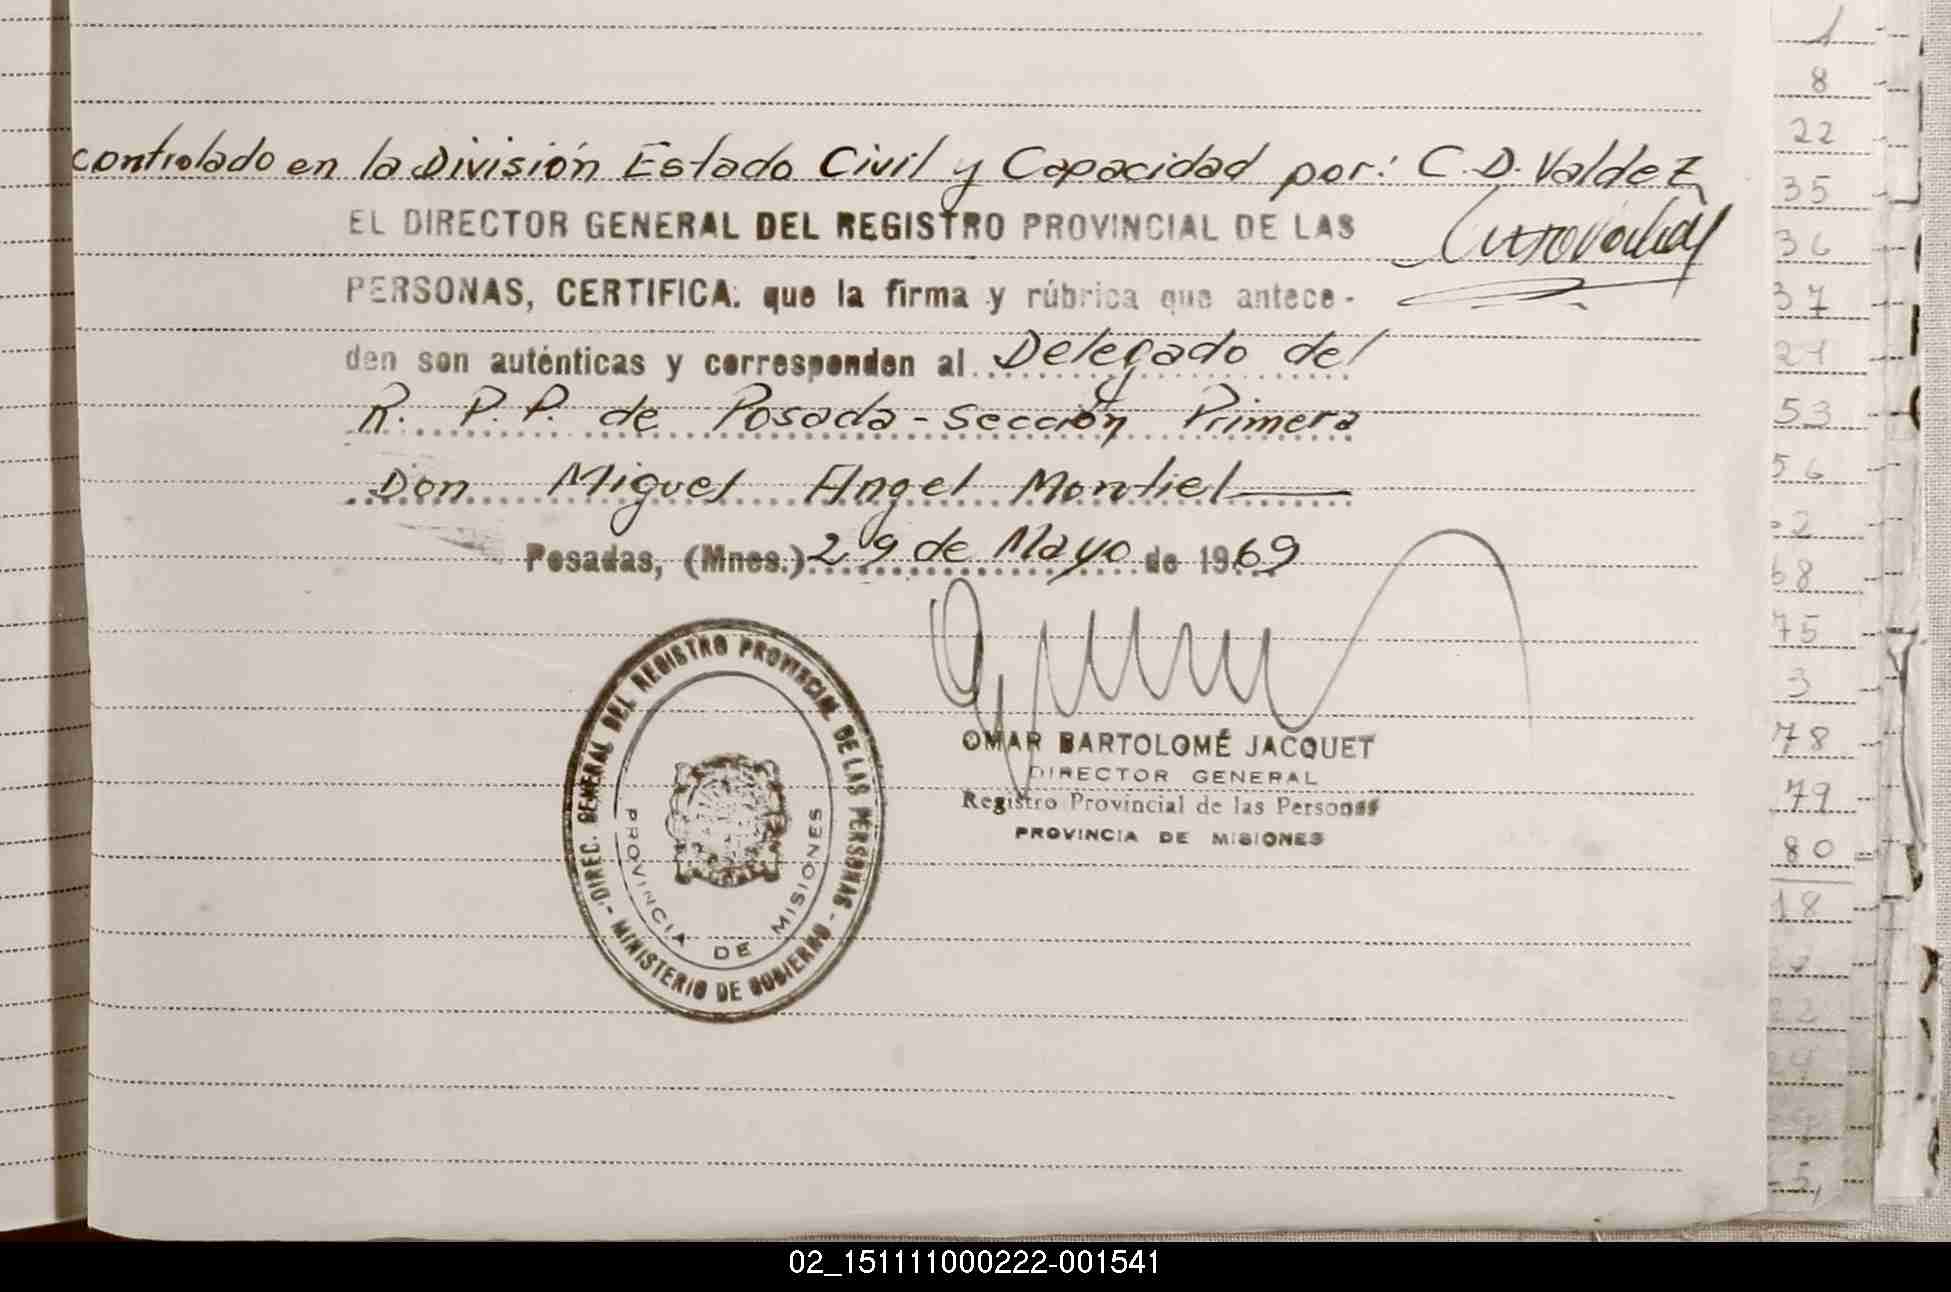 controlado en la División Estado Civil y Capacidad por: C. D. Valdez
EL DIRECTOR GENERAL DEL REGISTRO PROVINCIAL DE LAS
PERSONAS, CERTIFICA: que la firma y rúbrica que antece-
den son auténticas y corresponden al Delegado del
R. P. P. de Posada - Sección Primera
Don Miguel Angel Montiel
Posadas, (Mnes.) 29 de Mayo de 1969
DIREC. GENERAL DEL REGISTRO PROVINCIAL DE LAS PERSONAS
- MINISTERIO DE GOBIERNO -
PROVINCIA DE MISIONES
OMAR BARTOLOMÉ JACQUET
DIRECTOR GENERAL
Registro Provincial de las Personas
PROVINCIA DE MISIONES
1
8
22
35
36
37
21
53
56
68
75
3
78
79
80
18
02_151111000222-001541